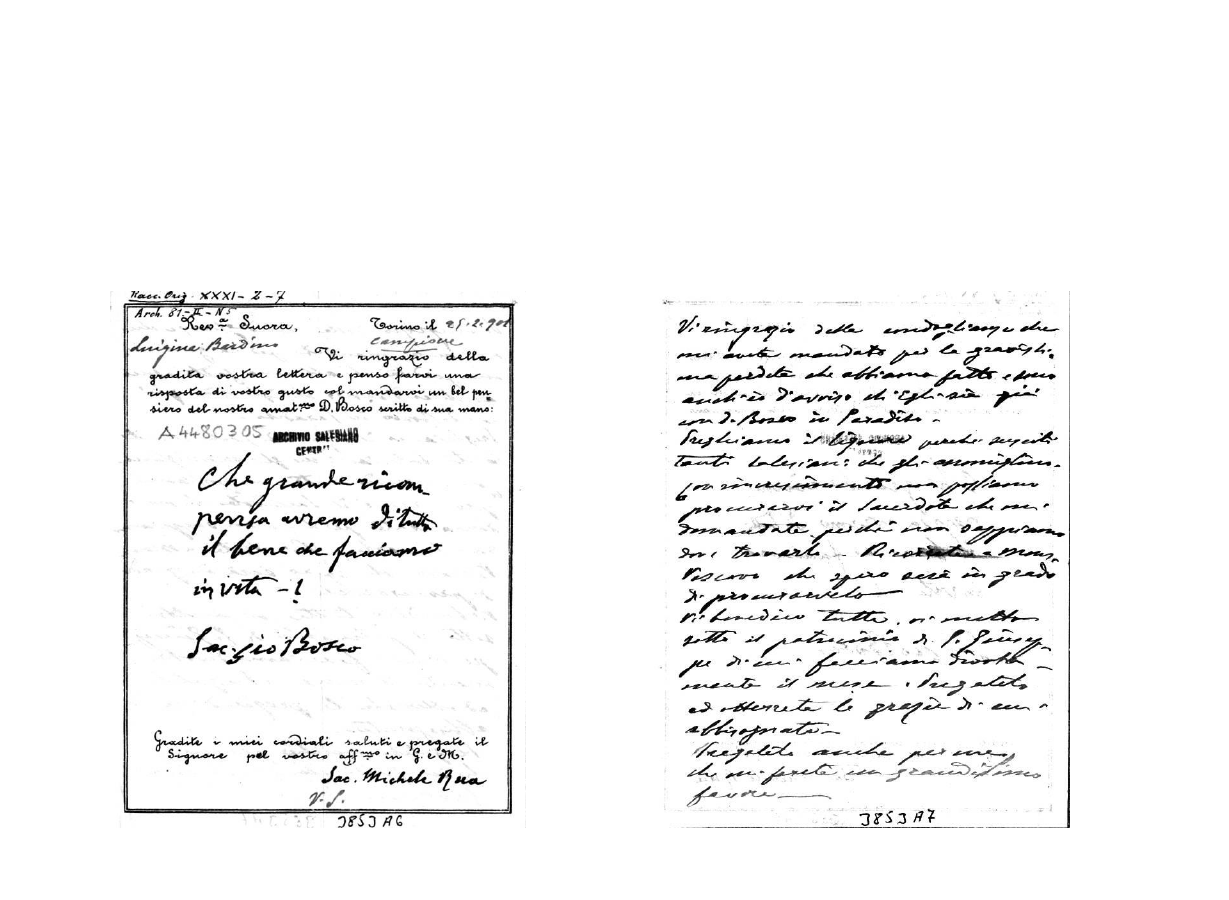 Racc. Orig. XXXI - Z - 7
Arch. 61-II-N5
Rev.ª Suora, Torino il 25.2.901
Luigina Bardina campisere
Vi ringrazio della
gradita vostra lettera e penso farvi una
risposta di vostro gusto col mandarvi un bel pen
siero del nostro amat.mo D. Bosco scritto di sua mano:
A4480305 ARCHIVIO SALESIANO
CENTR
Che grande ricom_
pensa avremo di tutto
il bene che facciamo
in vita - !
Sac. Gio Bosco
Gradite i miei cordiali saluti e pregate il
Signore pel vostro aff.mo in G. e M.
Sac. Michele Rua
V. S.
3853 A6
Vi ringrazio delle condoglianze che
mi avete mandato per la gravissi-
ma perdita che abbiamo fatto e sono
anch'io d'avviso ch'Egli sia già
con D. Bosco in Paradiso -
Preghiamo il Signore perché susciti
tanti salesiani che gli assomiglino.
Con rincrescimento non possiamo
procurarvi il Sacerdote che mi
domandate, perché non sappiamo
dove trovarlo - Ricorrete a Mons.
Vescovo che spero sarà in grado
di procurarvelo
Vi benedico tutte, vi metto
sotto il patrocinio di S. Giusep-
pe di cui facciamo divota-
mente il mese. Pregatelo
ed otterrete le grazie di cui
abbisognate -
Pregatelo anche per me
che mi farete un grandissimo
favore -
3853 A7